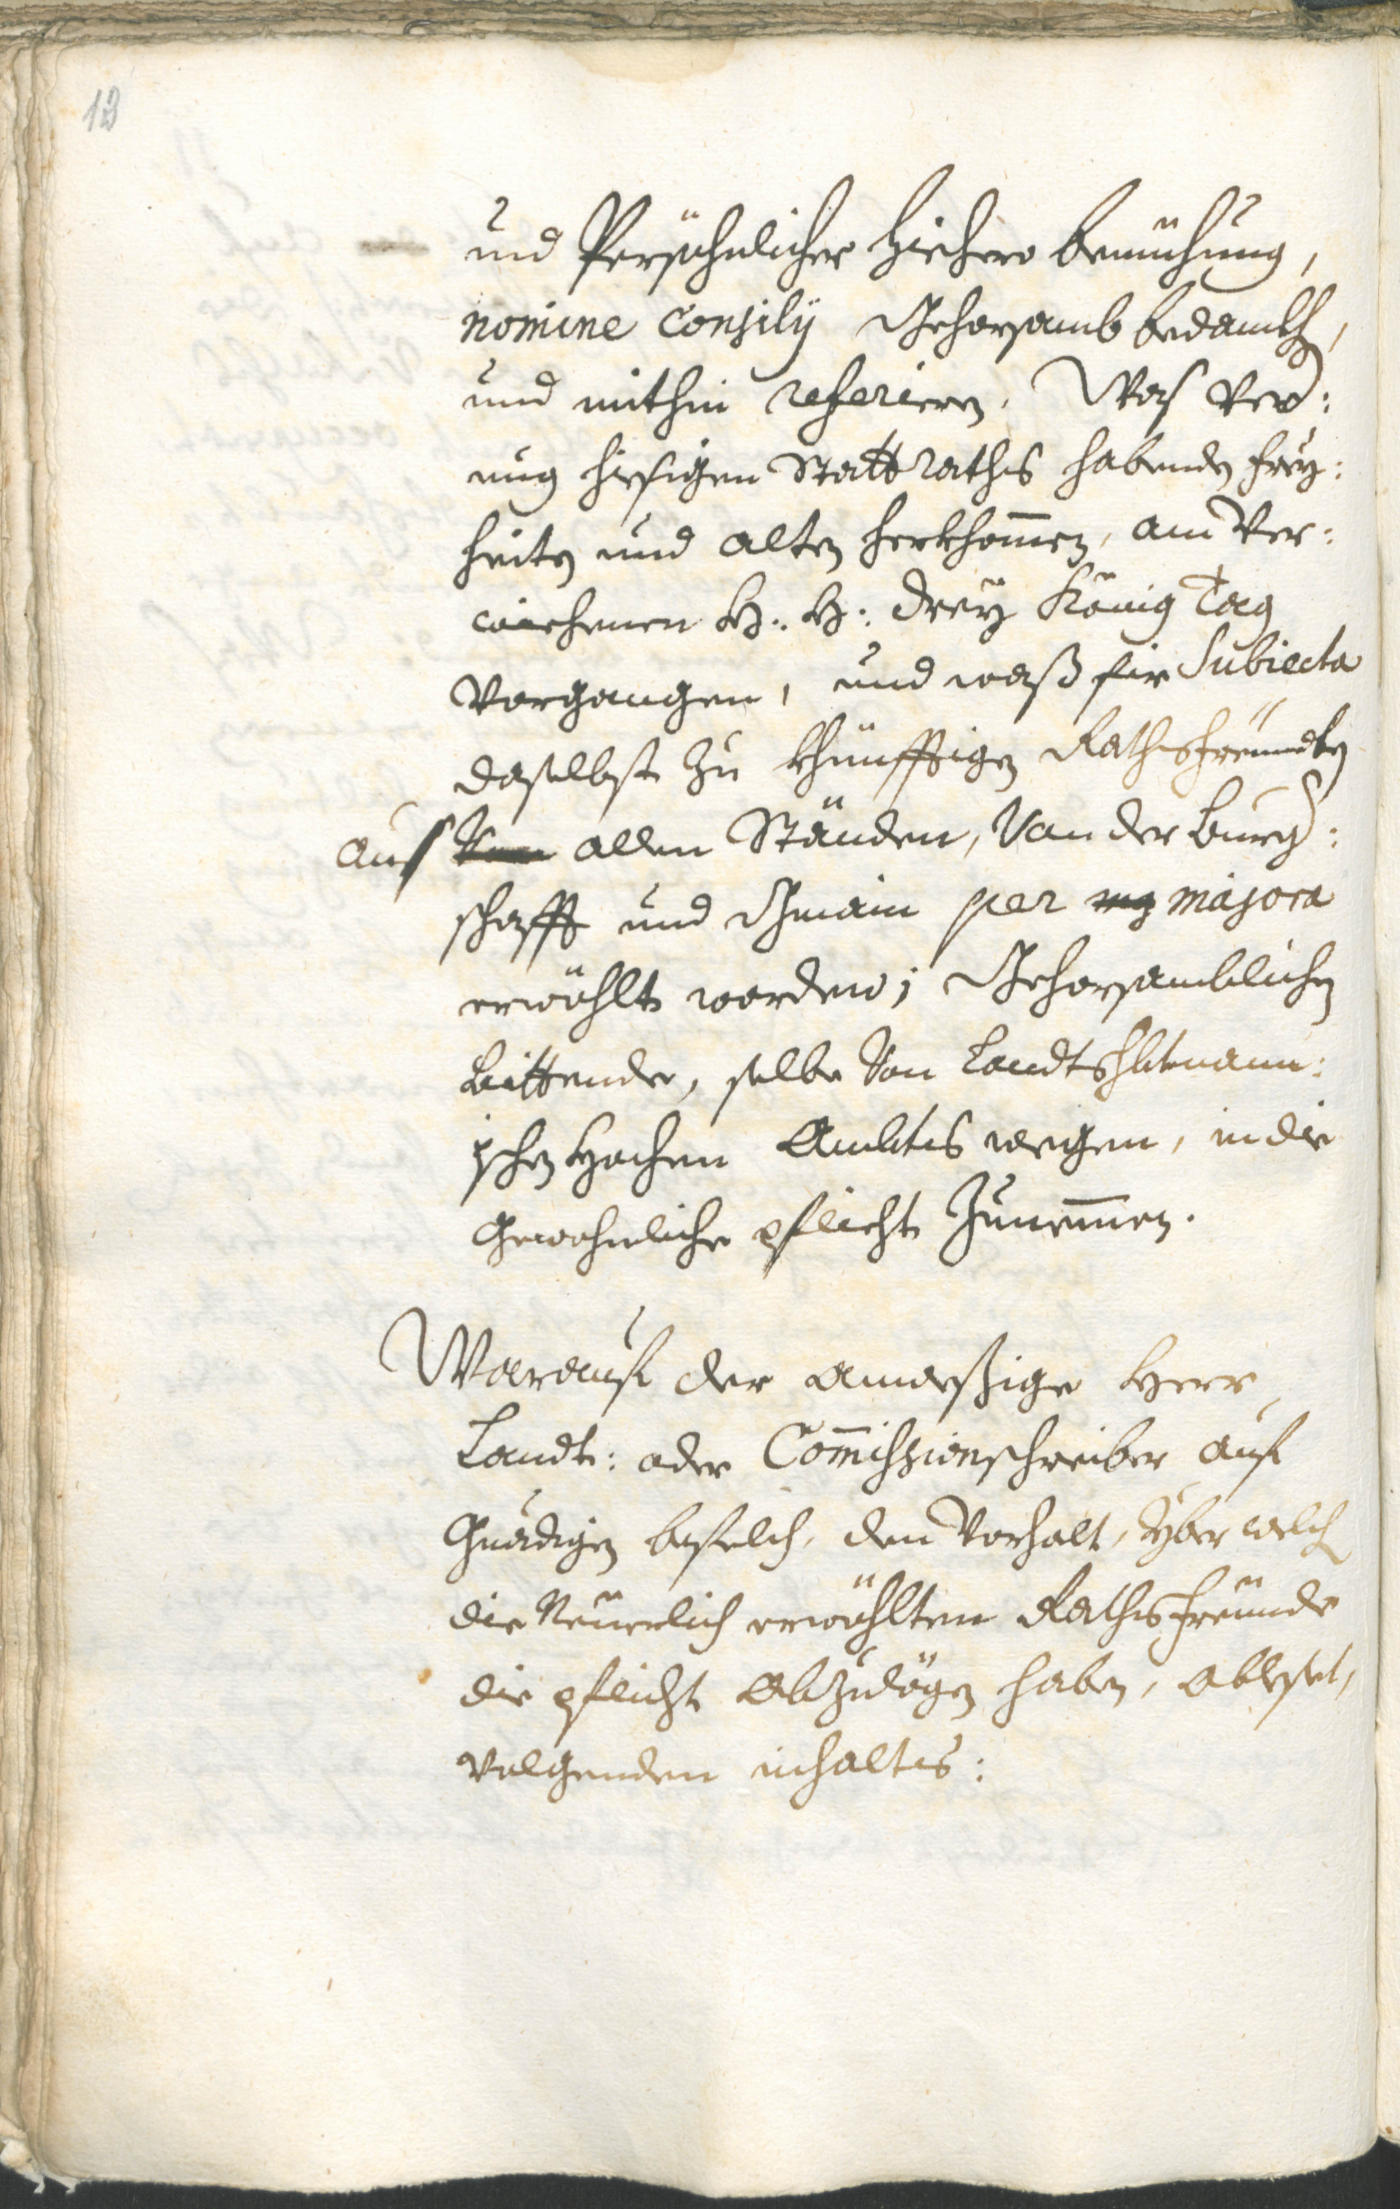 13
und Persöhnlicher hiehero bemüehung,
nomine Consilÿ Gehorsamb bedankh,
und mithin referiern. Was Ver:
mög hiesigen Stattraths habenden frey:
heiten und alten herkhomen, am Ver:
wichenen H: H: dreÿ König Tag
Vorgangen, und waß für Subiecta
daselbst zu khünfftigen Rathsfreundten
auß allen Ständen, Von der Burg:
schafft und Gmain per majora
erwöhlt worden; Gehorsamblichen
bittende, selbe Von Landtshbtmann:
ischen Hochen Ambts wegen, in die
Gewohnliche pflicht Zunemmen.
Warauf der anwesige Herr
Landt: oder Commissionschreiber auf
Gnädigen befelch, den Vorhalt, Über welch
die Neuerlich erwöhlten Rathsfreunde
die pflicht Abzulögen haben, ablesst,
Volgenden inhalts: